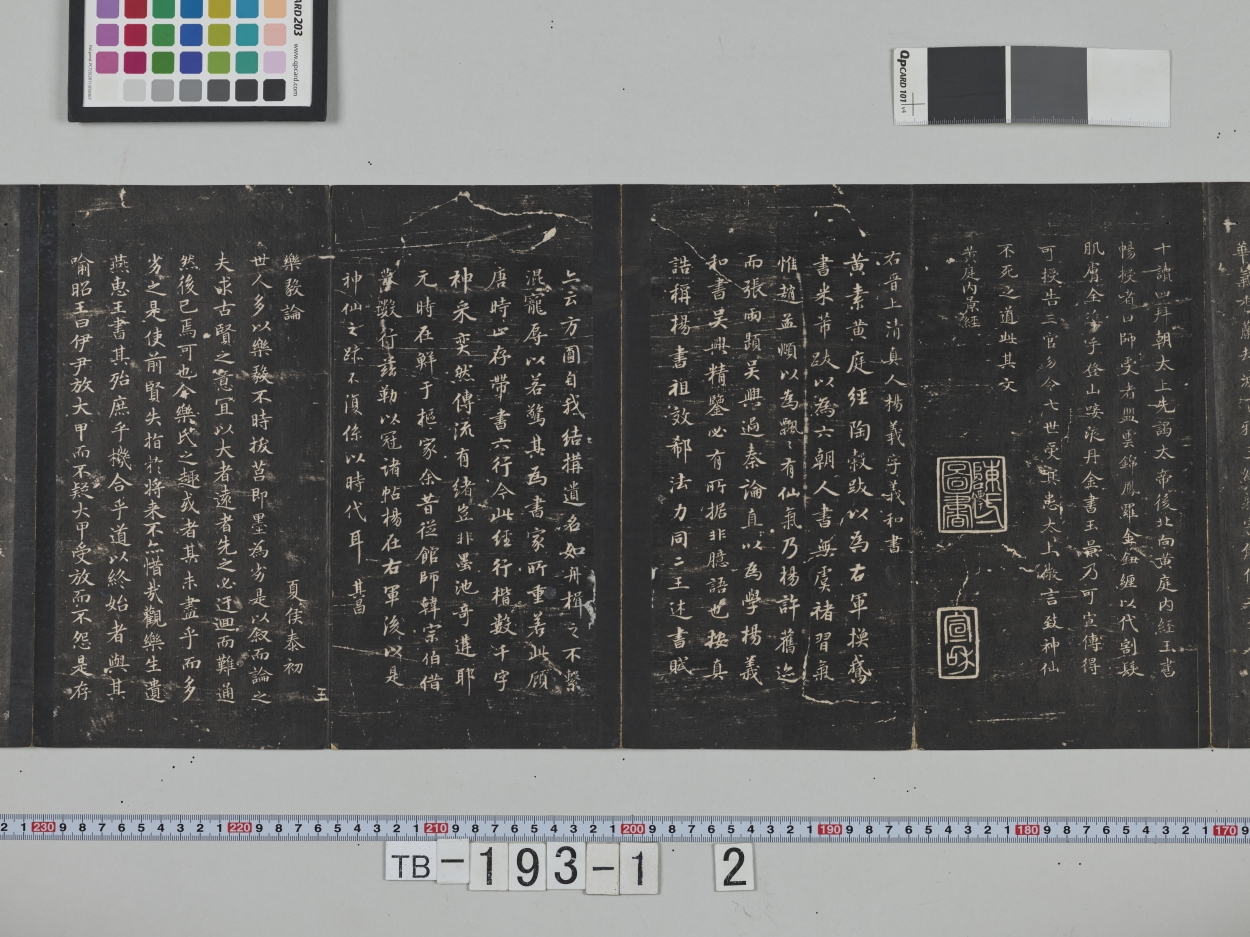 十讀四拜朝太上先謁太帝後北向黃庭內經玉書
暢授者曰師受者盟雲錦鳳羅金鈕纏以代割髮
肌膚全㩦手登山歃液丹金書玉景乃可宣傳得
可授告三官勿令七世受冥患太上微言致神仙
不死之道此其文
黃庭內景經
陳氏圖書
宣和
右晉上清真人楊羲字羲和書
黃素黃庭經陶穀跋以為右軍換鵞
書米芾跋以為六朝人書無虞褚習氣
惟趙孟頫以為飄飄有仙氣乃楊許舊迹
而張雨題吳興過秦論直以為學楊羲
和書吳興精鑒必有所据非臆語也按真
誥稱楊書祖效郗法力同二王述書賦
亦云方圓自我結構遺名如舟楫之不繫
混寵辱以若驚其為書家所重若此顧
唐時止存帶書六行今此經行楷數千字
神采奕然傳流有緒豈非墨池奇遘耶
元時在鮮于樞家余昔從館師韓宗伯借
摹數行茲勒以冠諸帖楊在右軍後以是
神仙之跡不復係以時代耳 其昌
樂毅論 夏侯泰初
王
世人多以樂毅不時拔莒即墨為劣是以敘而論之
夫求古賢之意宜以大者遠者先之必迂迴而難通
然後已焉可也今樂氏之趣或者其未盡乎而多
劣之是使前賢失指於將来不亦惜哉觀樂生遺
燕惠王書其殆庶乎機合乎道以終始者與其
喻昭王曰伊尹放大甲而不疑大甲受放而不怨是存
QPCARD 101 v4
CARD 203
www.qpcard.com
TB-193-1 2
230 220 210 200 190 180 170